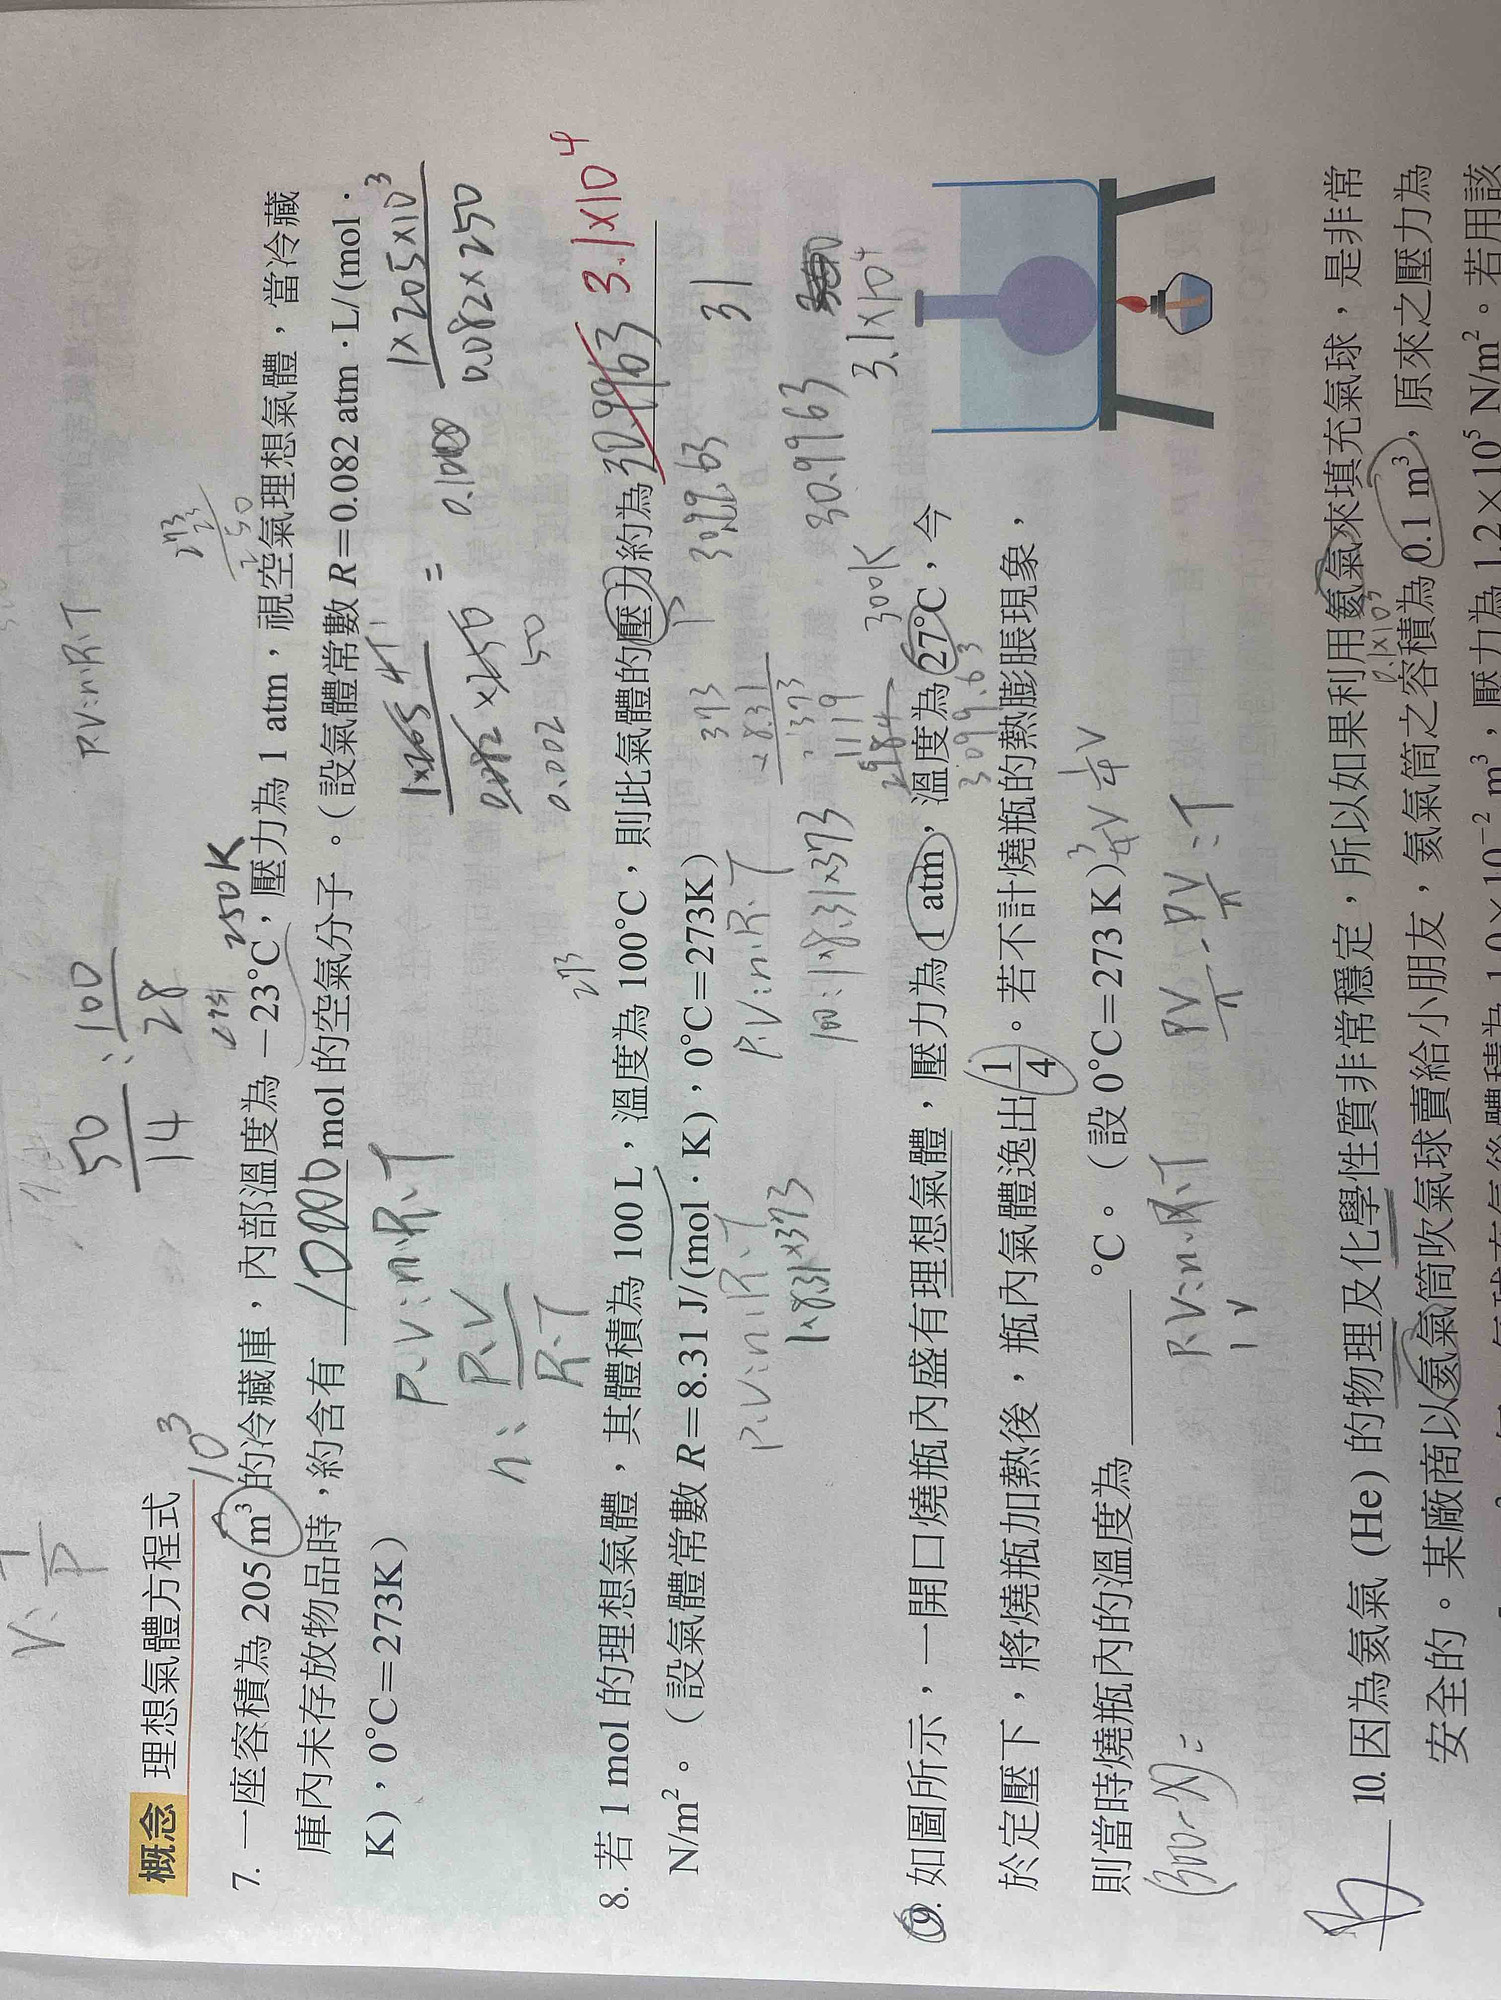 V = 1/P
50/14 : 100/28
P.V=n.R.T
概念 理想氣體方程式
10³
273
250K
273
23
250
7. 一座容積為 205 m³ 的冷藏庫，內部溫度為 −23°C，壓力為 1 atm，視空氣理想氣體，當冷藏
庫內未存放物品時，約含有 10000 mol 的空氣分子。（設氣體常數 R＝0.082 atm · L/(mol ·
K)，0°C＝273K）
P.V=n.R.T
n = P.V/R.T
1×205×10³
0.082×250
0.002
50
8. 若 1 mol 的理想氣體，其體積為 100 L，溫度為 100°C，則此氣體的壓力約為 3.1×10⁴
N/m²。（設氣體常數 R＝8.31 J/(mol · K)，0°C＝273K）
273
P.V=n.R.T
1×8.31×373
P.V=n.R.T
100=1×8.31×373
373
×8.31
373
1119
2984
3099.63
3099.63
31
30.9963
3.1×10⁴
300K
9. 如圖所示，一開口燒瓶內盛有理想氣體，壓力為 1 atm，溫度為 27°C，今
於定壓下，將燒瓶加熱後，瓶內氣體逸出 1/4。若不計燒瓶的熱膨脹現象，
則當時燒瓶內的溫度為 ＿＿＿ °C。（設 0°C＝273 K）
3/4V 1/4V
P.V=n.R.T
1 V
PV/n = PV/n = T
0.1×10³
10. 因為氦氣 (He) 的物理及化學性質非常穩定，所以如果利用氦氣來填充氣球，是非常
安全的。某廠商以氦氣筒吹氣球賣給小朋友，氦氣筒之容積為 0.1 m³，原來之壓力為
氣球充氣後體積為 1.0×10⁻² m³，壓力為 1.2×10⁵ N/m²。若用該